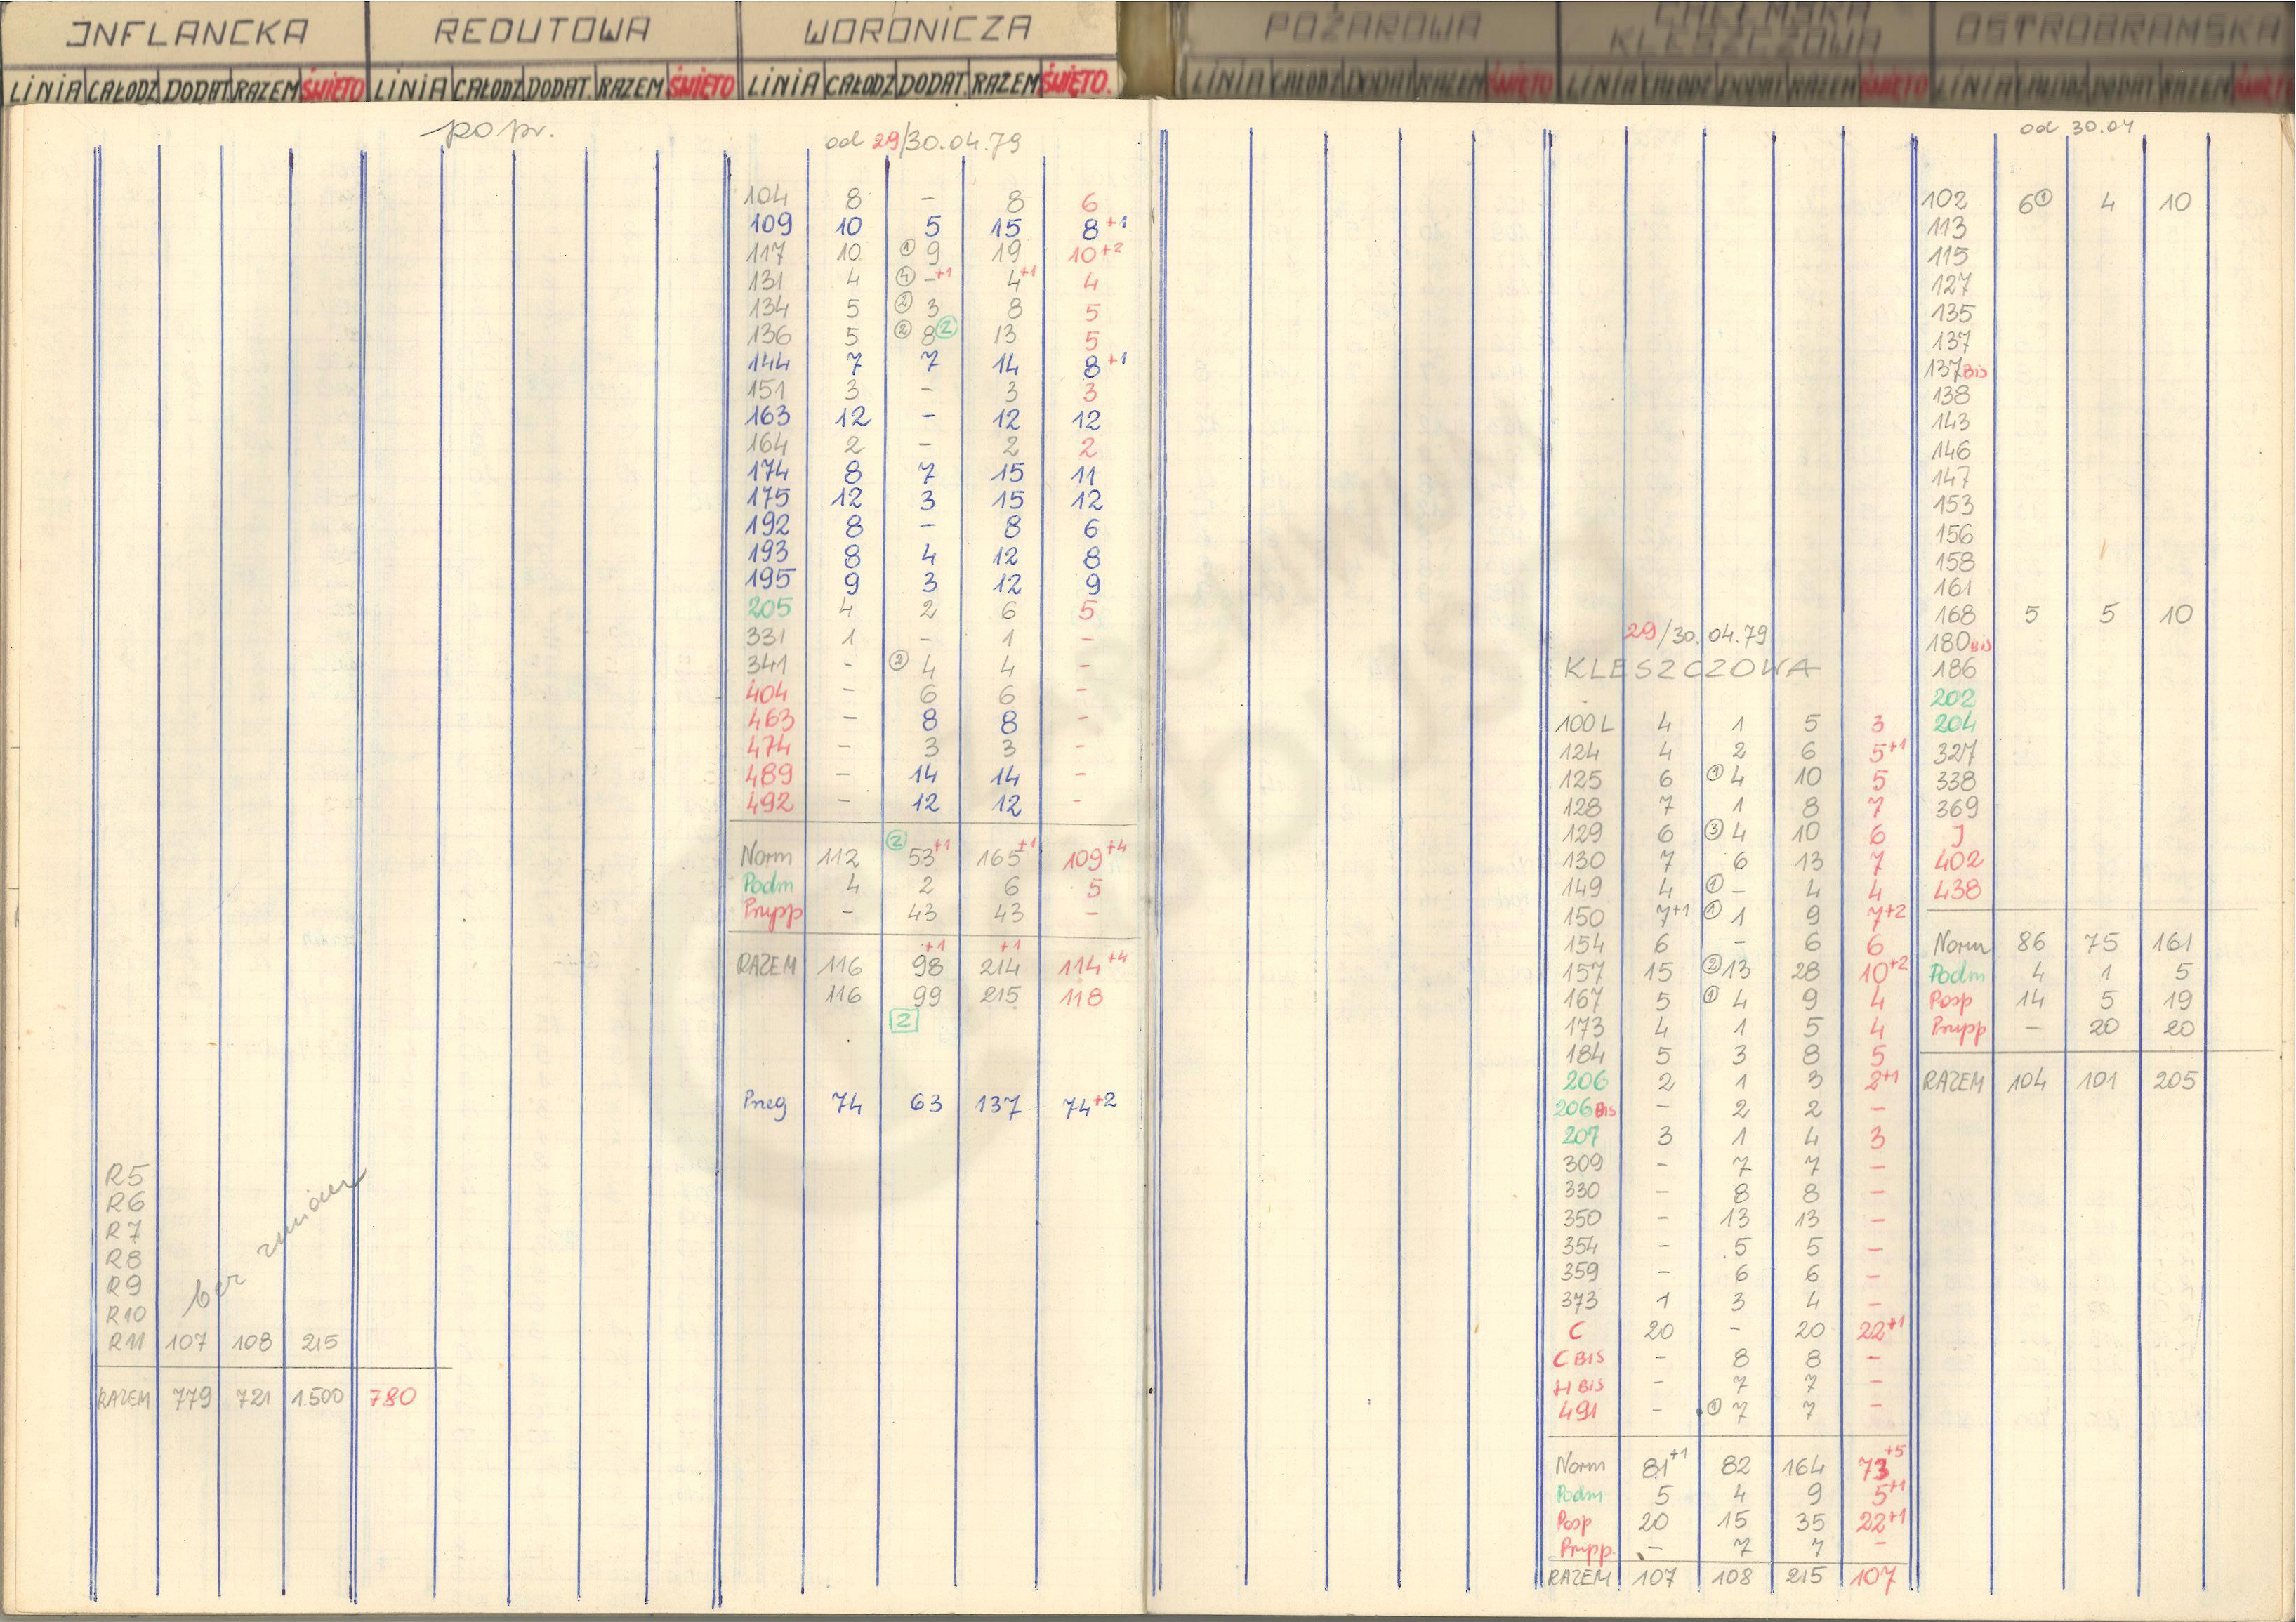 INFLANCKA REDUTOWA WORONICZA
LINIA CAŁODZ DODAT RAZEM ŚWIĘTO LINIA CAŁODZ DODAT. RAZEM ŚWIĘTO LINIA CAŁODZ DODAT. RAZEM ŚWIĘTO.
popr.
R5
R6
R7
R8
R9
R10
bez zmian
R11 107 108 215
RAZEM 779 721 1.500 780
od 29/30.04.79
104 8 - 8 6
109 10 5 15 8+1
117 10 ① 9 19 10+2
131 4 ④ -+1 4+1 4
134 5 ② 3 8 5
136 5 ② 8② 13 5
144 7 7 14 8+1
151 3 - 3 3
163 12 - 12 12
164 2 - 2 2
174 8 7 15 11
175 12 3 15 12
192 8 - 8 6
193 8 4 12 8
195 9 3 12 9
205 4 2 6 5
331 1 - 1 -
341 - ③ 4 4 -
404 - 6 6 -
463 - 8 8 -
474 - 3 3 -
489 - 14 14 -
492 - 12 12 -
Norm 112 ② 53+1 165+1 109+4
Podm 4 2 6 5
Przypp - 43 43 -
RAZEM 116 98+1 214+1 114+4
116 99 215 118
2
Przeg 74 63 137 74+2
POŻAROWA CHEŁMSKA KLESZCZOWA OSTROBRAMSKA
LINIA CAŁODZ DODAT RAZEM ŚWIĘTO LINIA CAŁODZ DODAT RAZEM ŚWIĘTO LINIA CAŁODZ DODAT RAZEM ŚWIĘT
29/30.04.79
KLESZCZOWA
100L 4 1 5 3
124 4 2 6 5+1
125 6 ① 4 10 5
128 7 1 8 7
129 6 ③ 4 10 6
130 7 6 13 7
149 4 ① - 4 4
150 7+1 ① 1 9 7+2
154 6 - 6 6
157 15 ② 13 28 10+2
167 5 ① 4 9 4
173 4 1 5 4
184 5 3 8 5
206 2 1 3 2+1
206 BIS - 2 2 -
207 3 1 4 3
309 - 7 7 -
330 - 8 8 -
350 - 13 13 -
354 - 5 5 -
359 - 6 6 -
373 1 3 4 -
C 20 - 20 22+1
C BIS - 8 8 -
H BIS - 7 7 -
491 - ① 7 7 -
Norm 81+1 82 164 73+5
Podm 5 4 9 5+1
Posp 20 15 35 22+1
Przypp. - 7 7 -
RAZEM 107 108 215 107
od 30.04
102 6① 4 10
113
115
127
135
137
137 BIS
138
143
146
147
153
156
158
161
168 5 5 10
180 BIS
186
202
204
327
338
369
J
402
438
Norm 86 75 161
Podm 4 1 5
Posp 14 5 19
Przypp - 20 20
RAZEM 104 101 205